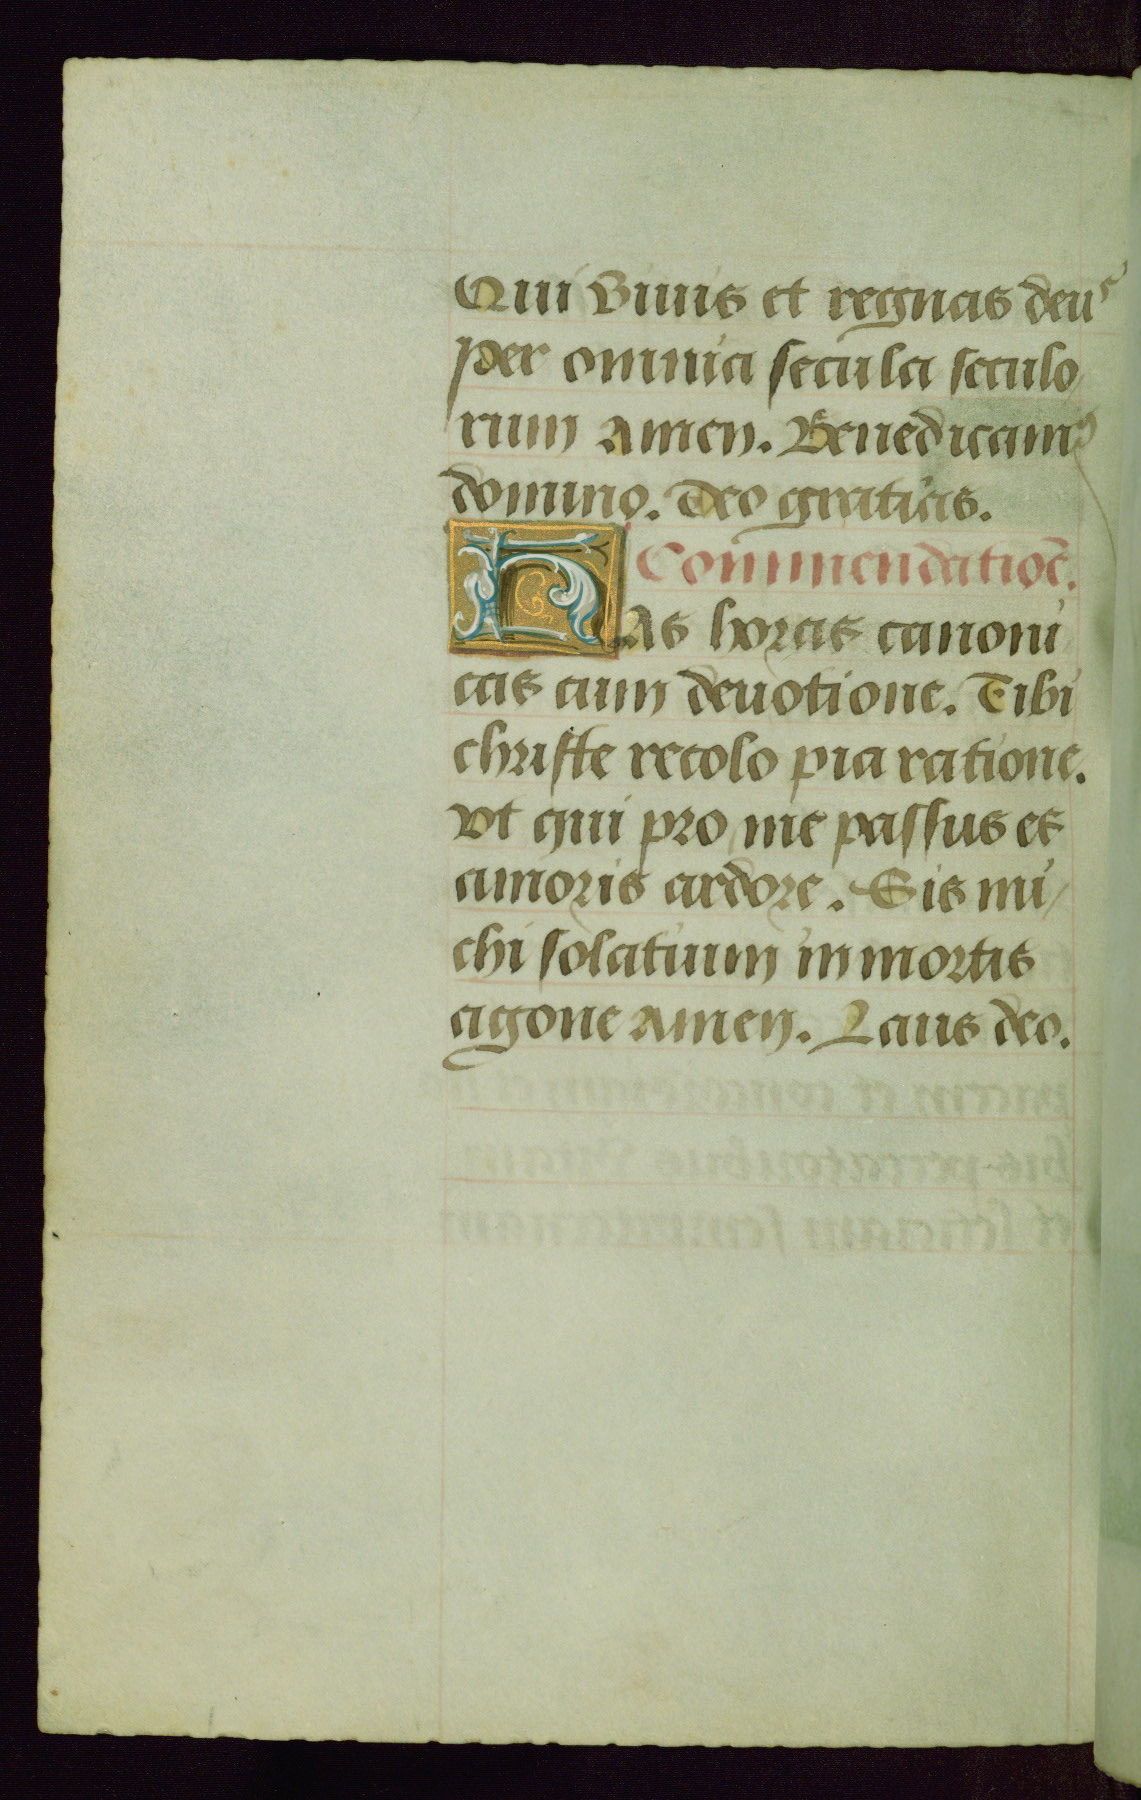 Qui viuis et regnas deus
per omnia secula seculo
rum Amen. Benedicamꝰ
domino. Deo gratias.
Commendatiōe.
HAs horas canoni
cas cum deuotione. Tibi
christe recolo pia ratione.
Vt qui pro me passus es
amoris ardore. Sis mi/
chi solatium in mortis
agone Amen. Laus deo.